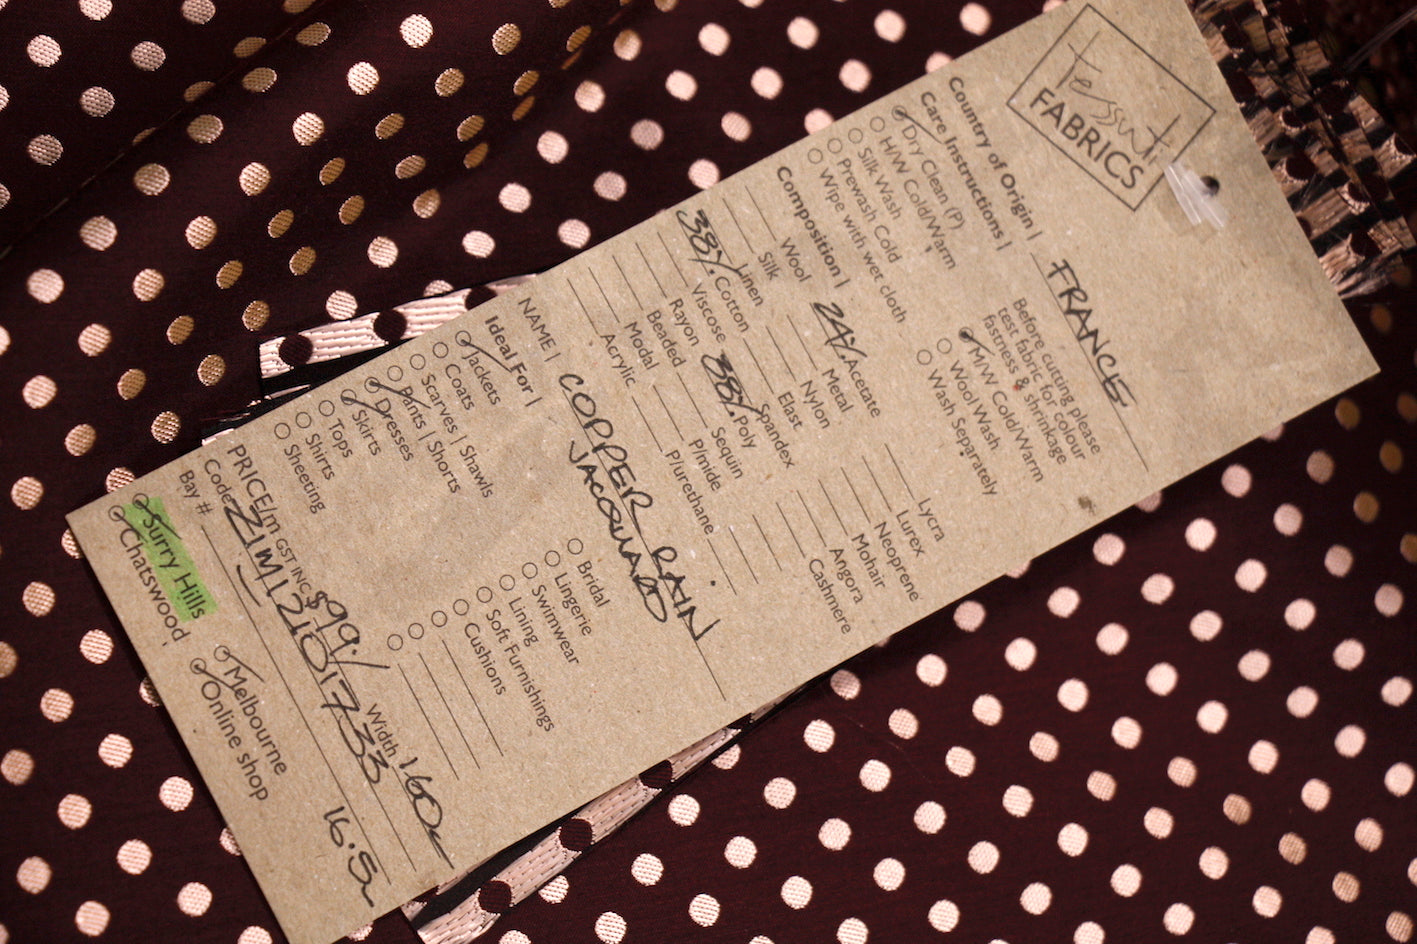 tessuti
FABRICS
Country of Origin | FRANCE
Care Instructions |
Dry Clean (P)
H/W Cold/Warm
Silk Wash
Prewash Cold
Wipe with wet cloth
Before cutting please
test fabric for colour
fastness & shrinkage
M/W Cold/Warm
Wool Wash
Wash Separately
Composition |
Wool
Silk
Linen
38% Cotton
Viscose
Rayon
Beaded
Modal
Acrylic
24% Acetate
Metal
Nylon
Elast
Spandex
38% Poly
Sequin
P/mide
P/urethane
Lycra
Lurex
Neoprene
Mohair
Angora
Cashmere
NAME | COPPER RAIN
JACQUARD
Ideal For |
Jackets
Coats
Scarves | Shawls
Pants | Shorts
Dresses
Skirts
Tops
Shirts
Sheeting
Bridal
Lingerie
Swimwear
Lining
Soft Furnishings
Cushions
PRICE/m GST INC $99./ Width 160c
Code ZIM12101733
Bay # 16.5
Surry Hills
Chatswood
Melbourne
Online shop